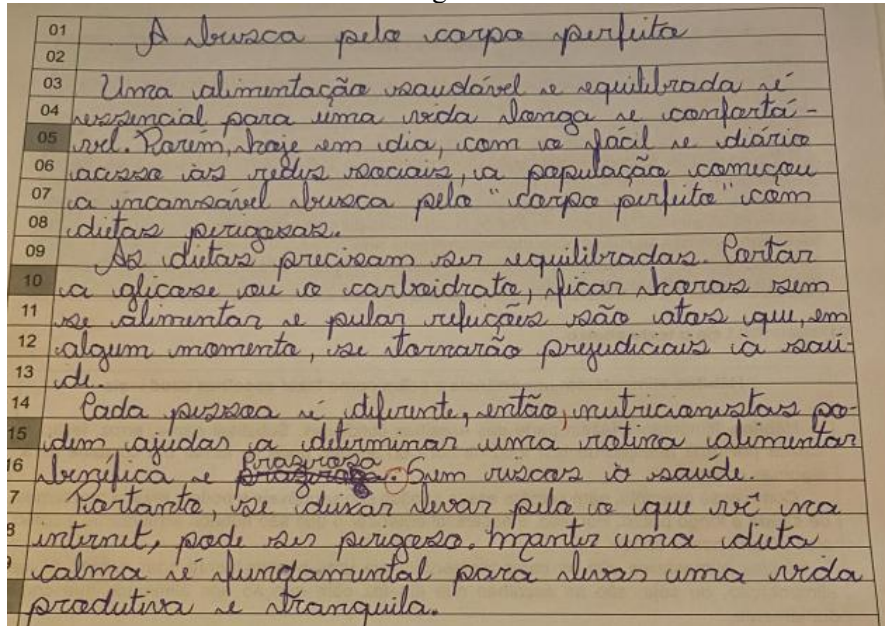 01 A busca pelo corpo perfeito
02
03 Uma alimentação saudável e equilibrada é
04 essencial para uma vida longa e confortá-
05 vel. Porém, hoje em dia, com o fácil e diário
06 acesso às redes sociais, a população começou
07 a incansável busca pelo "corpo perfeito" com
08 dietas perigosas.
09 As dietas precisam ser equilibradas. Cortar
10 a glicose ou o carboidrato, ficar horas sem
11 se alimentar e pular refeições são atos que, em
12 algum momento, se tornarão prejudiciais à saú-
13 de.
14 Cada pessoa é diferente, então, nutricionistas po-
15 dem ajudar a determinar uma rotina alimentar
16 benéfica e prazerosa. Sem riscos à saúde.
7 Portanto, se deixar levar pelo o que vê na
8 internet, pode ser perigoso. Manter uma dieta
calma é fundamental para levar uma vida
produtiva e tranquila.